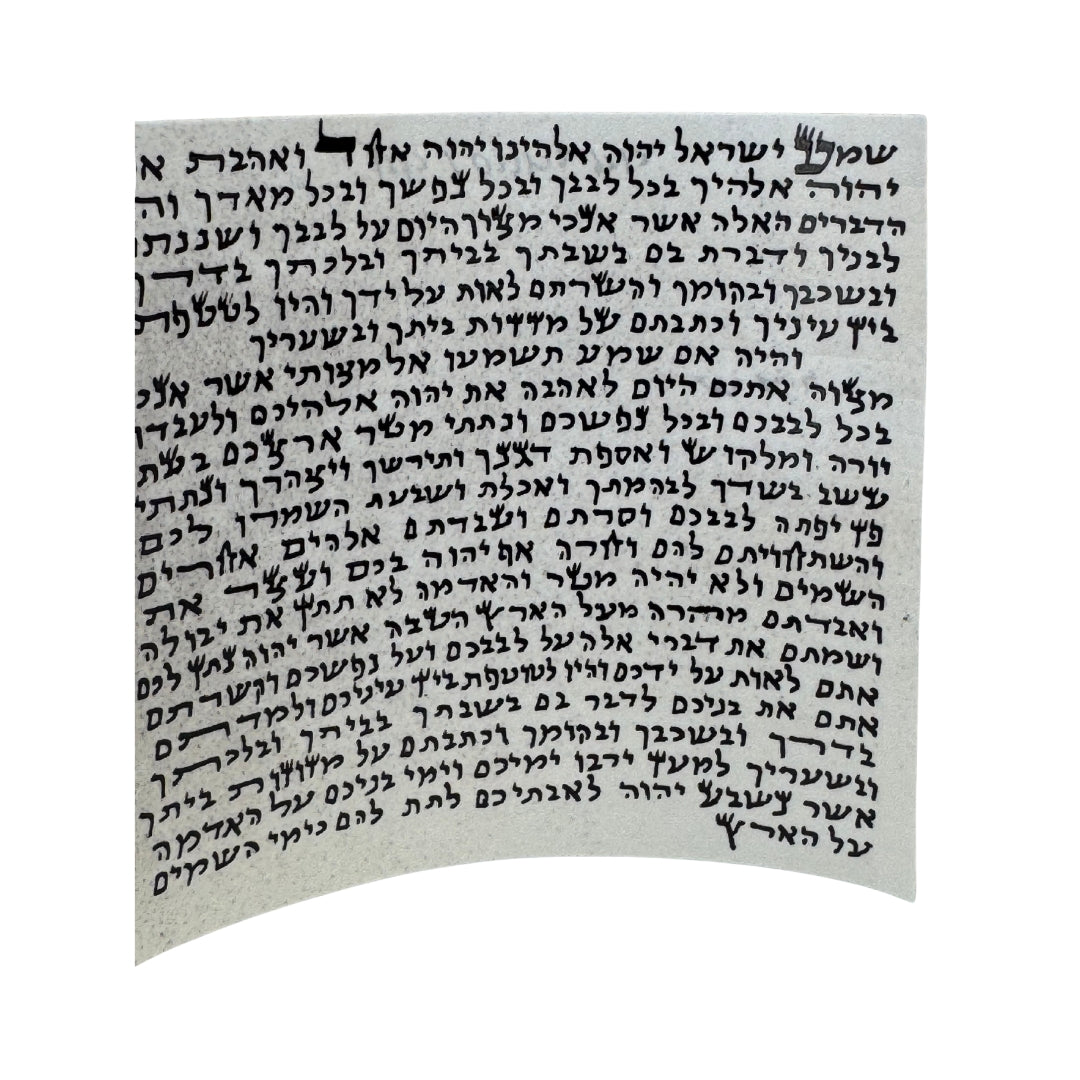 שמע ישראל יהוה אלהינו יהוה אחד ואהבת
יהוה אלהיך בכל לבבך ובכל נפשך ובכל מאדך
הדברים האלה אשר אנכי מצוך היום על לבבך
לבניך ודברת בם בשבתך בביתך ובלכתך בדרך
ובשכבך ובקומך וקשרתם לאות על ידך והיו לטטפת
בין עיניך וכתבתם על מזזות ביתך ובשעריך
והיה אם שמע תשמעו אל מצותי אשר אנכי
מצוה אתכם היום לאהבה את יהוה אלהיכם ולעבדו
בכל לבבכם ובכל נפשכם ונתתי מטר ארצכם בעת
יורה ומלקוש ואספת דגנך ותירשך ויצהרך ונתתי
עשב בשדך לבהמתך ואכלת ושבעת השמרו לכם
פן יפתה לבבכם וסרתם ועבדתם אלהים אחרים
והשתחויתם להם וחרה אף יהוה בכם ועצר את
השמים ולא יהיה מטר והאדמה לא תתן את יבולה
ואבדתם מהרה מעל הארץ הטבה אשר יהוה נתן לכם
ושמתם את דברי אלה על לבבכם ועל נפשכם וקשרתם
אתם לאות על ידכם והיו לטוטפת בין עיניכם ולמדתם
אתם את בניכם לדבר בם בשבתך בביתך ובלכתך
בדרך ובשכבך ובקומך וכתבתם על מזוזות ביתך
ובשעריך למען ירבו ימיכם וימי בניכם על האדמה
אשר נשבע יהוה לאבתיכם לתת להם כימי השמים
על הארץ